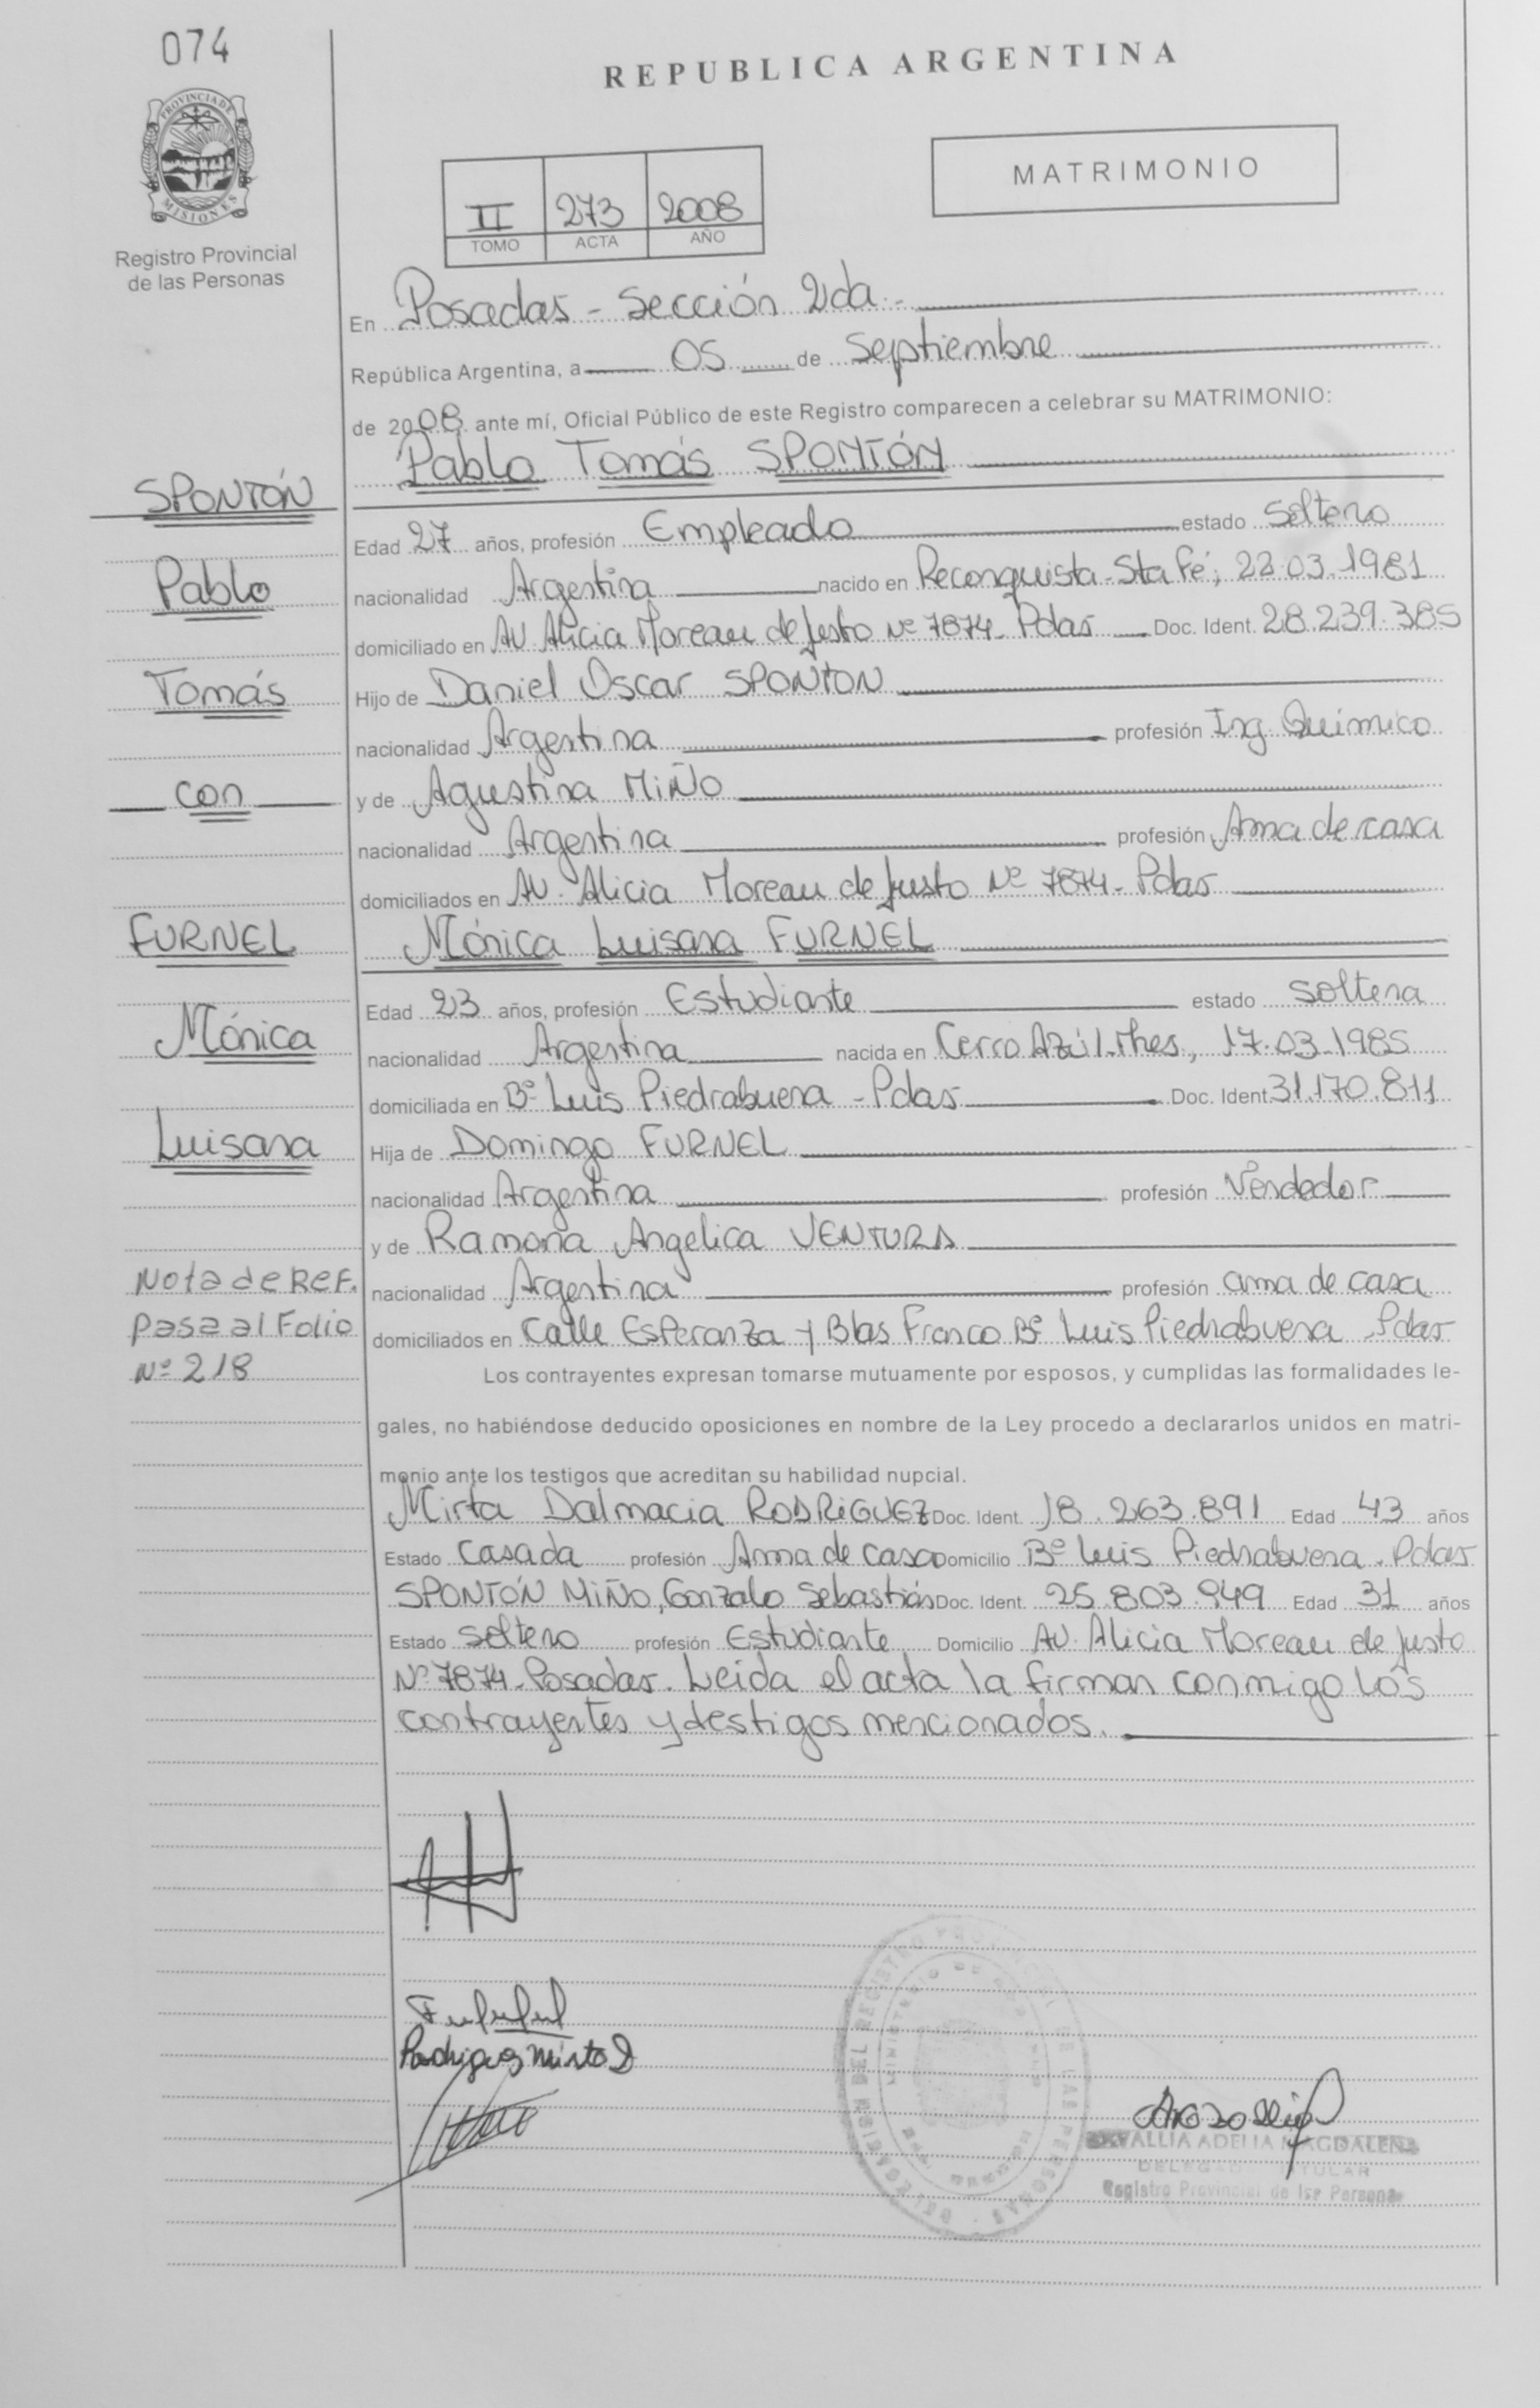 074
REPUBLICA ARGENTINA
PROVINCIA DE
MISIONES
Registro Provincial
de las Personas
MATRIMONIO
II 273 2008
TOMO ACTA AÑO
En Posadas - Sección 2da.-
República Argentina, a 05 de Septiembre
de 2008 ante mí, Oficial Público de este Registro comparecen a celebrar su MATRIMONIO:
Pablo Tomás SPONTÓN
SPONTÓN
Edad 27 años, profesión Empleado estado Soltero
Pablo
nacionalidad Argentina nacido en Reconquista-Sta Fé; 22.03.1981
domiciliado en AV. Alicia Moreau de Justo Nº 7874- Pdas Doc. Ident. 28.239.385
Tomás
Hijo de Daniel Oscar SPONTON
nacionalidad Argentina profesión Ing. Químico
con
y de Agustina MIÑO
nacionalidad Argentina profesión Ama de casa
domiciliados en AV. Alicia Moreau de Justo Nº 7874- Pdas
FURNEL
Mónica Luisana FURNEL
Edad 23 años, profesión Estudiante estado Soltera
Mónica
nacionalidad Argentina nacida en Cerro Azúl-Mnes, 17.03.1985
domiciliada en Bº Luis Piedrabuena - Pdas Doc. Ident. 31.170.811
Luisana
Hija de Domingo FURNEL
nacionalidad Argentina profesión Vendedor
y de Ramona Angelica VENTURA
Nota de REF.
nacionalidad Argentina profesión ama de casa
Pasa al Folio
domiciliados en Calle Esperanza y Blas Franco Bº Luis Piedrabuena -Pdas
Nº 218
Los contrayentes expresan tomarse mutuamente por esposos, y cumplidas las formalidades le-
gales, no habiéndose deducido oposiciones en nombre de la Ley procedo a declararlos unidos en matri-
monio ante los testigos que acreditan su habilidad nupcial.
Mirta Dalmacia RODRIGUEZ Doc. Ident. 18.263.891 Edad 43 años
Estado Casada profesión Ama de casa Domicilio Bº Luis Piedrabuena - Pdas
SPONTÓN MIÑO, Gonzalo Sebastián Doc. Ident. 25.803.949 Edad 31 años
Estado Soltero profesión Estudiante Domicilio AV. Alicia Moreau de Justo
Nº 7874- Posadas. Leida el acta la firman conmigo los
contrayentes y testigos mencionados.
Rodriguez Mirta D
ADELIA MAGDALENA
DELEGADA TITULAR
Registro Provincial de las Personas